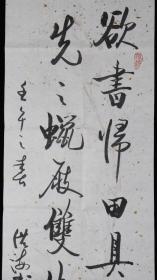 欲書帰田具
先之蠟屐雙
壬午之春
洪